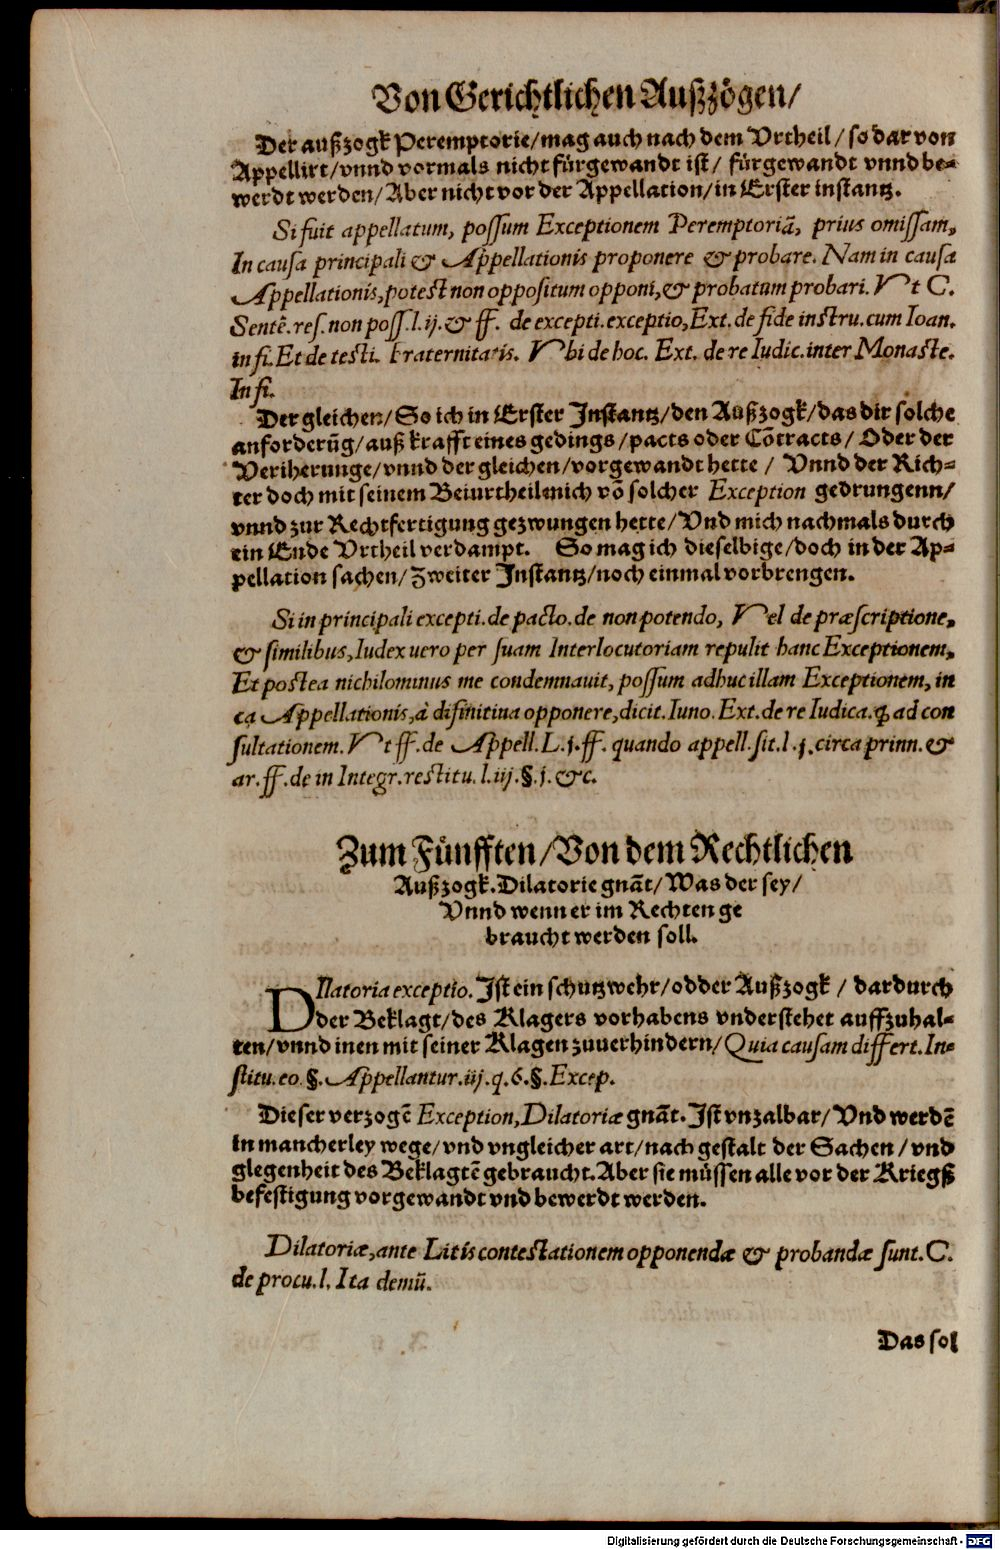 Von Gerichtlichen Außzögen/
Der außzogk Peremptorie/mag auch nach dem Vrtheil/so dar von
Appellirt/vnnd vormals nicht fürgewandt ist/ fürgewandt vnnd be-
werdt werden/Aber nicht vor der Appellation/in Erster instantz.
Si fuit appellatum, possum Exceptionem Peremptoriā, prius omissam,
In causa principali & Appellationis proponere & probare. Nam in causa
Appellationis, potest non oppositum opponi, & probatum probari. Vt C.
Sentē. res. non poss. l. ij. & ff. de excepti. exceptio, Ext. de fide instru. cum Ioan.
in fi. Et de testi. Fraternitatis. Vbi de hoc. Ext. de re Iudic. inter Monaste.
In fi.
Der gleichen/So ich in Erster Instantz/den Außzogk/das dir solche
anforderūg/auß krafft eines gedings/pacts oder Cōtracts/ Oder der
Veriherunge/vnnd der gleichen/vorgewandt hette/ Vnnd der Rich-
ter doch mit seinem Beiurtheil mich vō solcher Exception gedrungenn/
vnnd zur Rechtfertigung gezwungen hette/Vnd mich nachmals durch
ein Ende Vrtheil verdampt. So mag ich dieselbige/doch in der Ap-
pellation sachen/Zweiter Instantz/noch einmal vorbrengen.
Si in principali excepti. de pacto. de non potendo, Vel de præscriptione,
& similibus, Iudex uero per suam Interlocutoriam repulit hanc Exceptionem,
Et postea nichilominus me condemnauit, possum adhuc illam Exceptionem, in
cą Appellationis, à difinitiua opponere, dicit. Iuno. Ext. de re Iudica. ꝗ ad con
sultationem. Vt ff. de Appell. L. j. ff. quando appell. sit. l. j. circa prinn. &
ar. ff. de in Integr. restitu. l. iij. §. j. &c.
Zum Fünfften/Von dem Rechtlichen
Außzogk. Dilatorie gnāt/Was der sey/
Vnnd wenn er im Rechten ge
braucht werden soll.
DIlatoria exceptio. Ist ein schutzwehr/odder Außzogk / dardurch
der Beklagt/des Klagers vorhabens vnderstehet auffzuhal-
ten/vnnd inen mit seiner Klagen zuuerhindern/Quia causam differt. In-
stitu. eo. §. Appellantur. iij. q. 6. §. Excep.
Dieser verzogē Exception, Dilatoriæ gnāt. Ist vnzalbar/Vnd werdē
in mancherley wege/vnd vngleicher art/nach gestalt der Sachen/vnd
glegenheit des Beklagtē gebraucht. Aber sie müssen alle vor der Kriegß
befestigung vorgewandt vnd bewerdt werden.
Dilatoriæ, ante Litis contestationem opponendæ & probandæ sunt. C.
de procu. l. Ita demū.
Das sol
Digitalisierung gefördert durch die Deutsche Forschungsgemeinschaft - DFG